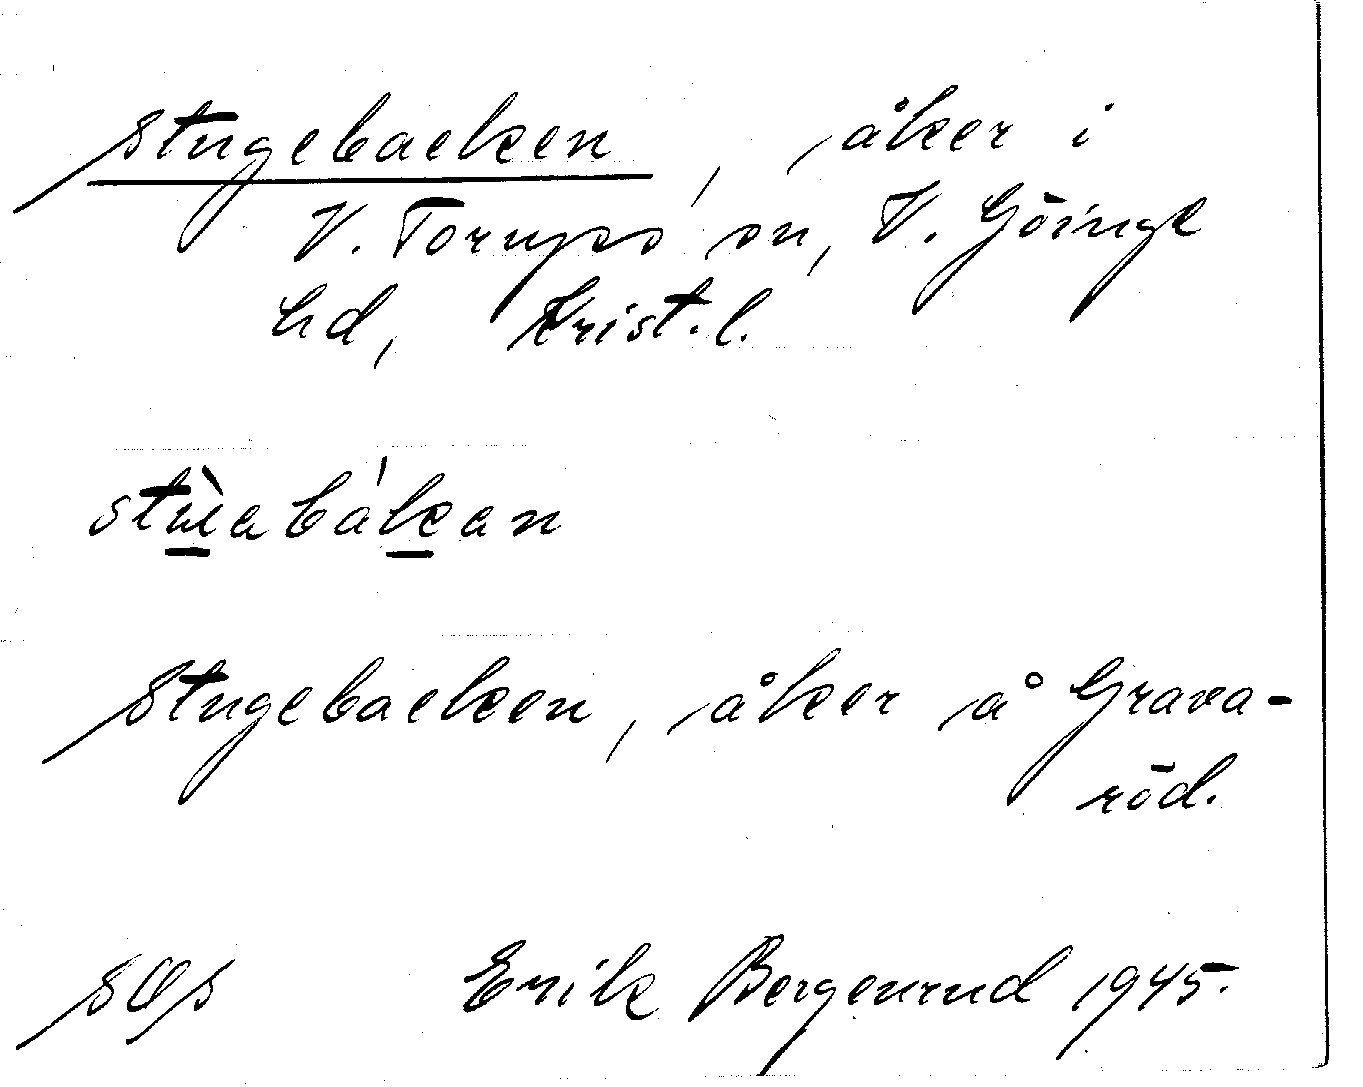 Stugebacken, åker i
V. Torups sn, V. Göinge
hd, Krist. l.
stùabákan
Stugebacken, åker å Grava-
röd.
SOS Erik Bergenrud 1945.